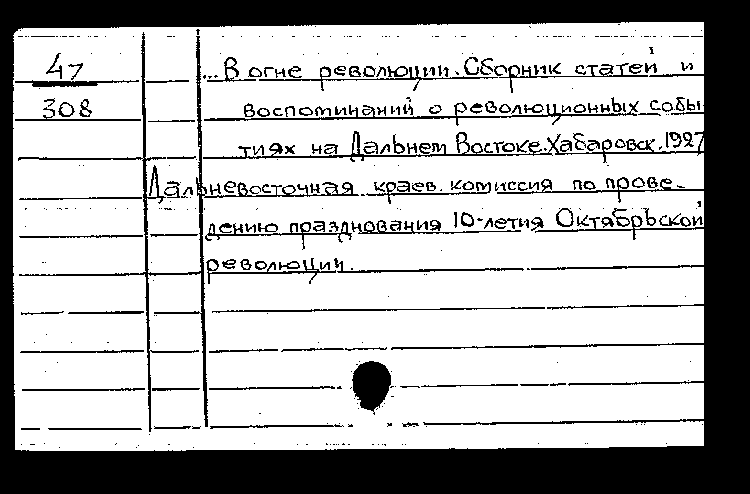 47
308
... В огне революции. Сборник статей и
воспоминаний о революционных собы-
тиях на Дальнем Востоке. Хабаровск. 1927
Дальневосточная краев. комиссия по прове-
дению празднования 10-летия Октябрьской
революции.